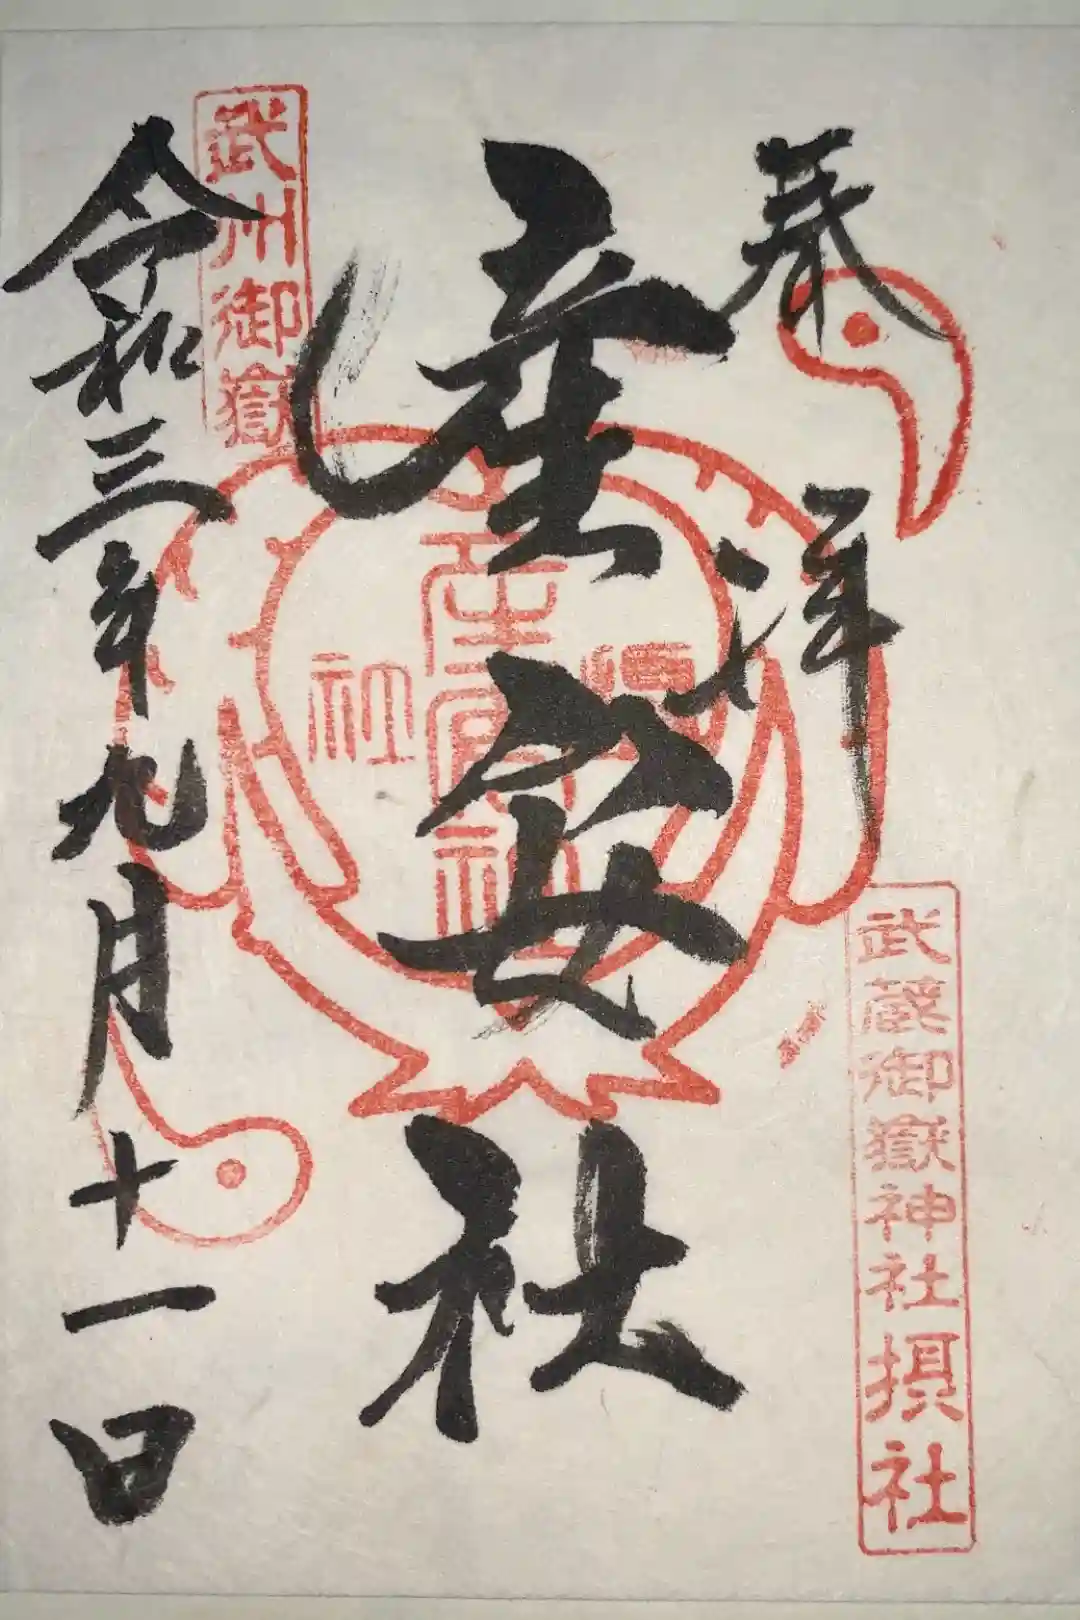 奉拝
武蔵御嶽神社摂社
産安社
産安社
武州御嶽
令和三年九月十一日